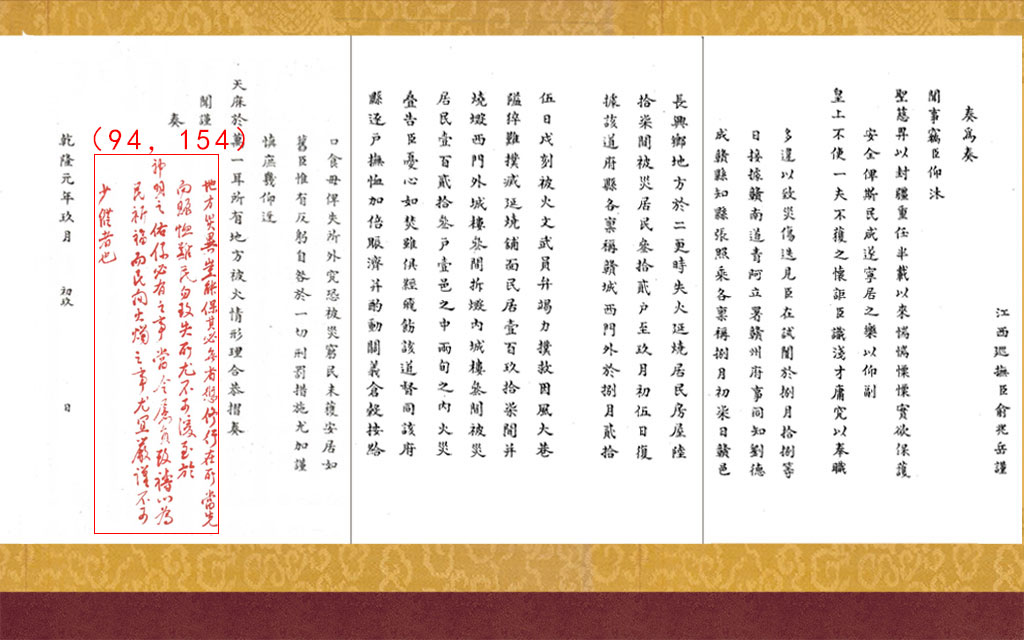 江西巡撫臣俞兆岳謹
奏為奏
聞事竊臣仰沐
聖慈畀以封疆重任半載以來惕惕慄慄實欲保護
安全俾斯民咸遂寧居之樂以仰副
皇上不使一夫不獲之懷詎臣識淺才庸究以奉職
多違以致災傷迭見臣在試闈於捌月拾捌等
日接據贛南道青阿立署贛州府事同知劉德
成贛縣知縣張照乘各稟稱捌月初柒日贛邑
長興鄉地方於二更時失火延燒居民房屋陸
拾柒間被災居民叅拾貳戶至玖月初伍日復
據該道府縣各稟稱贛城西門外於捌月貳拾
伍日戌刻被火文武員弁竭力撲救因風大巷
隘猝難撲滅延燒鋪面民居壹百玖拾柒間并
燒燬西門外城樓叅間拆燬內城樓叅間被災
居民壹百貳拾叅戶壹邑之中兩旬之內火災
疊告臣憂心如焚雖俱經飛飭該道督同該府
縣逐戶撫恤加倍賑濟并酌動關義倉穀接給
口食毋俾失所外究恐被災窮民未獲安居如
舊臣惟有反躬自咎於一切刑罰措施尤加謹
慎庶幾仰迓
天庥於萬一耳所有地方被火情形理合恭摺奏
聞謹
奏
(94, 154)
地方災異豈能保其必無者修行在所當先
向賑恤雖自致失所尤不可後至於
神明之佑保必有之事當令屬員致禱以為
民祈福而民間火燭之事尤宜嚴謹不可
少懈者也
乾隆元年玖月 初玖 日